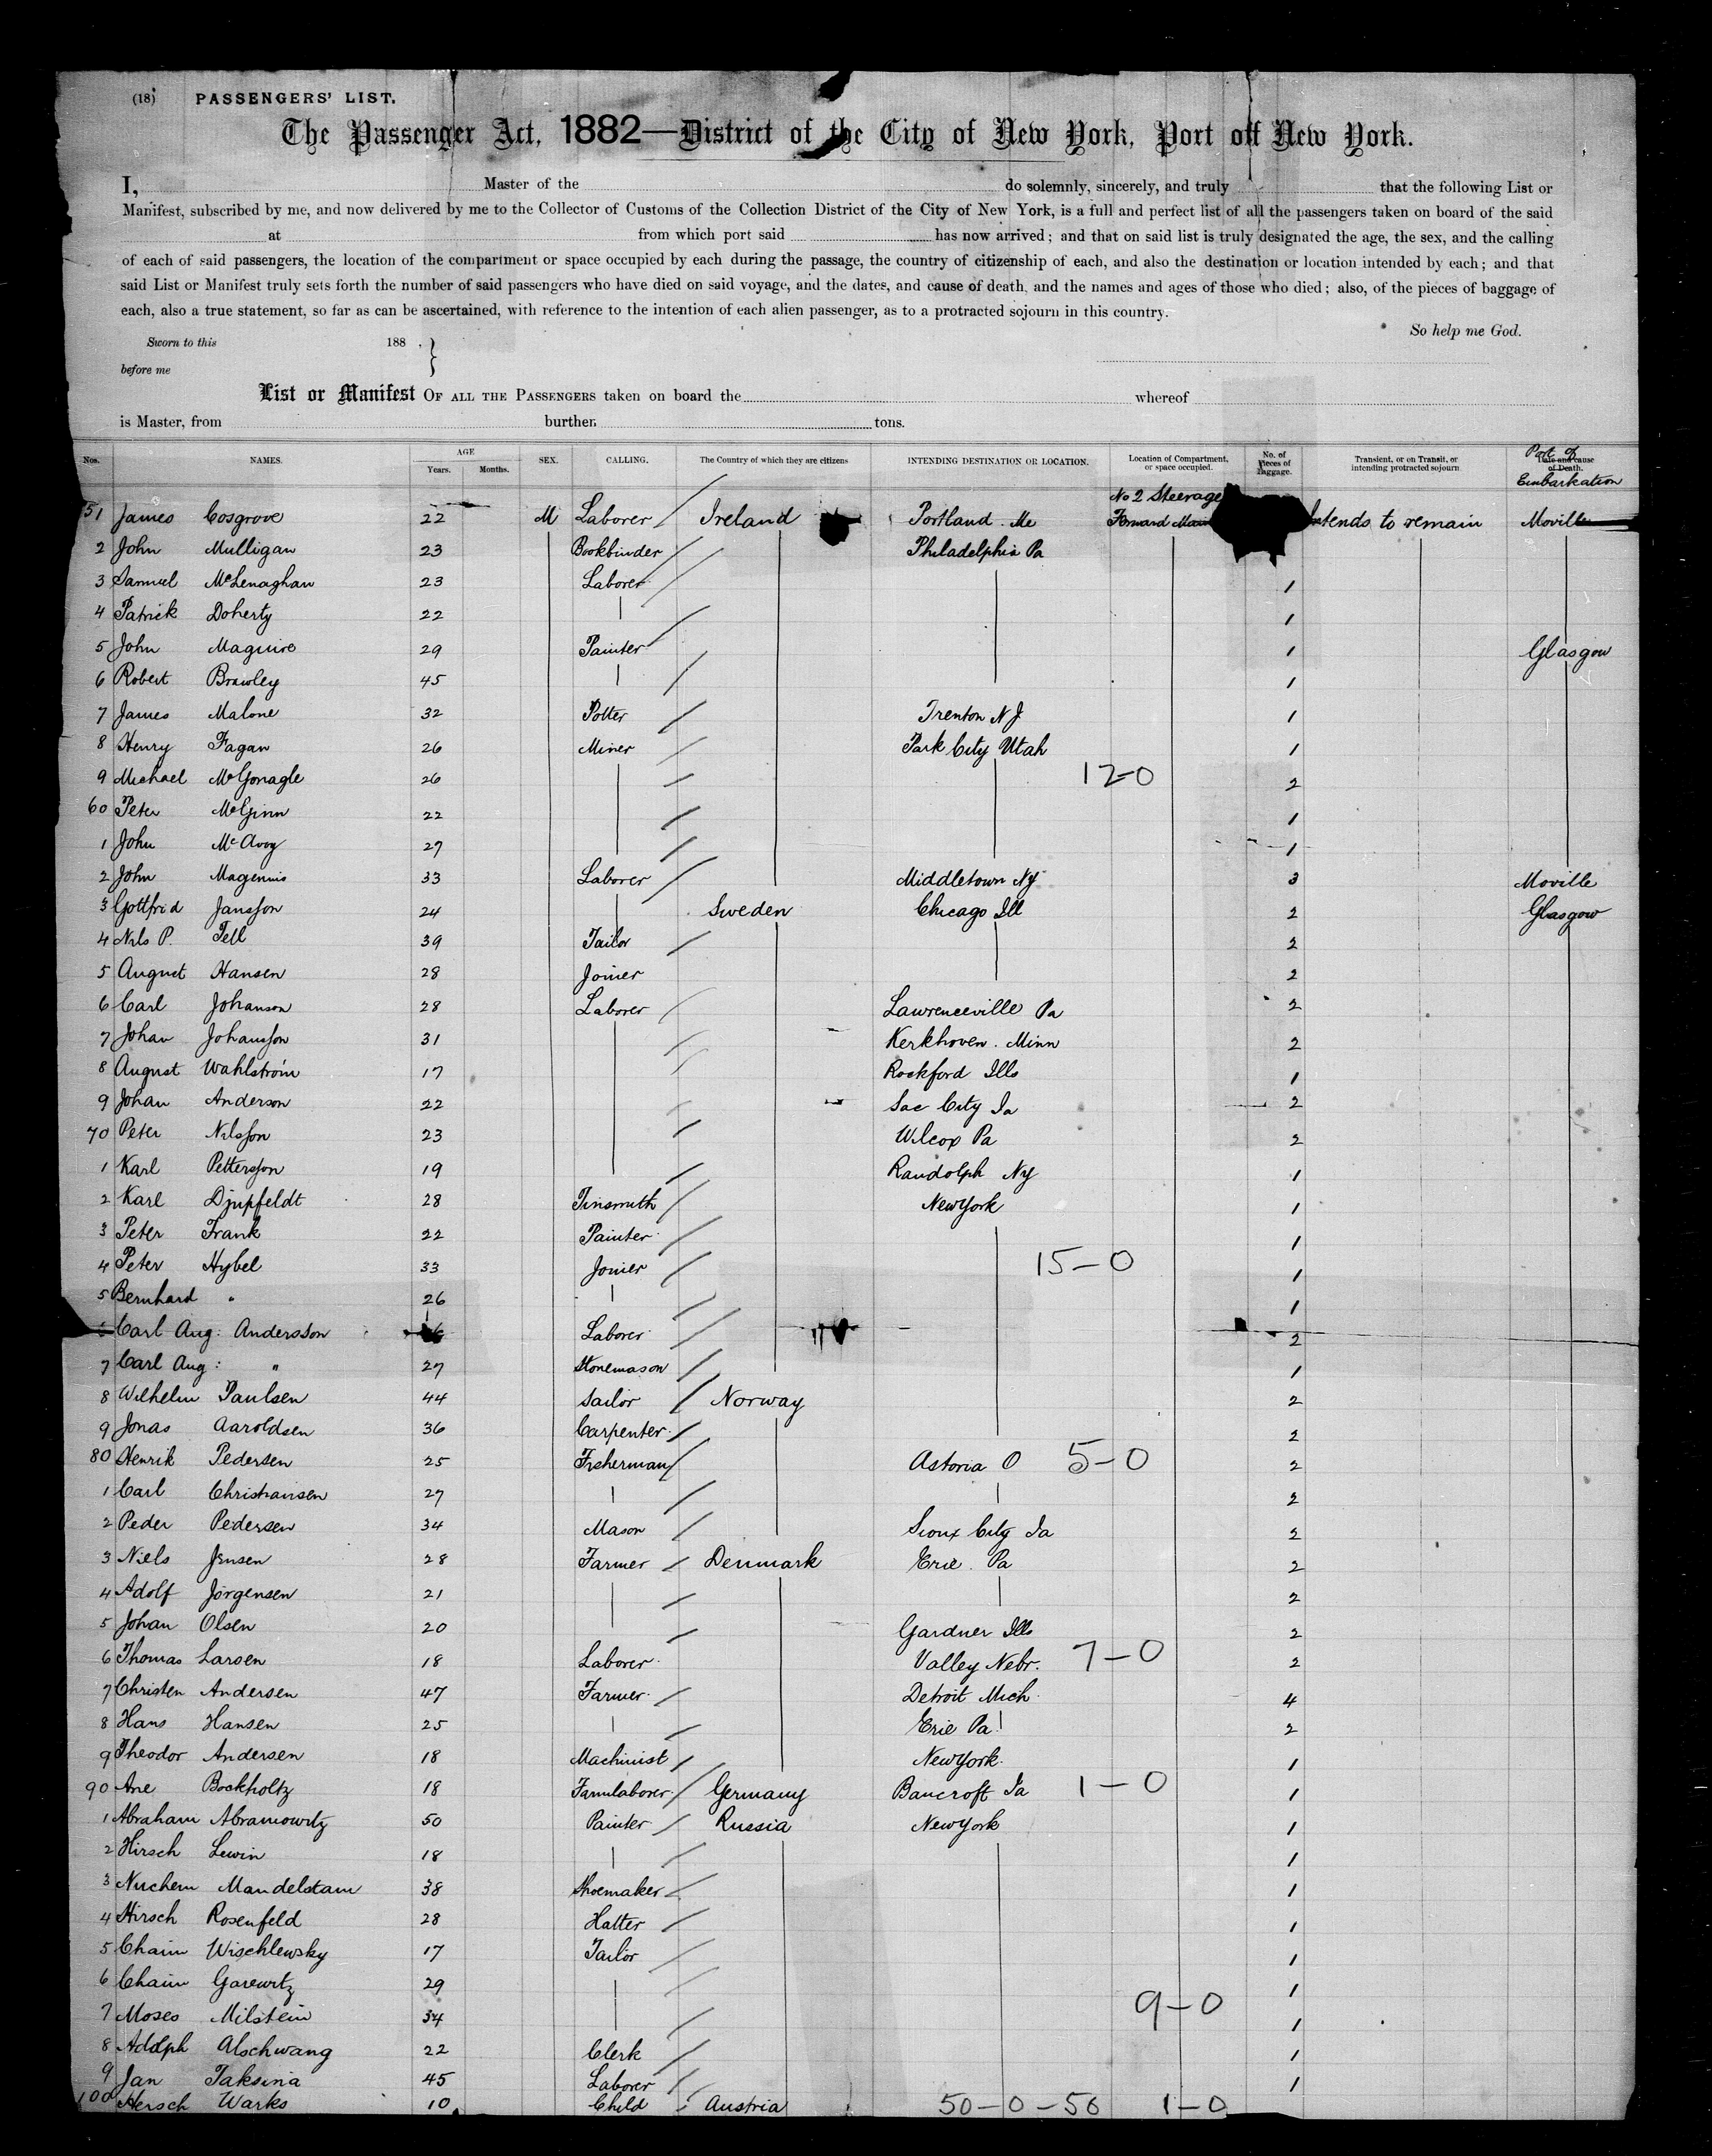 (18) PASSENGERS' LIST.
The Passenger Act, 1882—District of the City of New York, Port off New York.
I, Master of the do solemnly, sincerely, and truly that the following List or
Manifest, subscribed by me, and now delivered by me to the Collector of Customs of the Collection District of the City of New York, is a full and perfect list of all the passengers taken on board of the said
at from which port said has now arrived; and that on said list is truly designated the age, the sex, and the calling
of each of said passengers, the location of the compartment or space occupied by each during the passage, the country of citizenship of each, and also the destination or location intended by each; and that
said List or Manifest truly sets forth the number of said passengers who have died on said voyage, and the dates, and cause of death, and the names and ages of those who died; also, of the pieces of baggage of
each, also a true statement, so far as can be ascertained, with reference to the intention of each alien passenger, as to a protracted sojourn in this country.
So help me God.
Sworn to this 188 .
before me
List or Manifest OF ALL THE PASSENGERS taken on board the whereof
is Master, from burther. tons.
Nos. NAMES. AGE Years. Months. SEX. CALLING. The Country of which they are citizens INTENDING DESTINATION OR LOCATION. Location of Compartment, or space occupied. No. of Pieces of Baggage. Transient, or on Transit, or intending protracted sojourn. Date and cause of Death. Port of Embarkation
No 2 Steerage
51 James Cosgrove 22 M Laborer Ireland Portland. Me Forward Main Intends to remain Moville
2 John Mulligan 23 Bookbinder Philadelphia Pa
3 Samuel McLenaghan 23 Laborer 1
4 Patrick Doherty 22 1
5 John Maguire 29 Painter 1 Glasgow
6 Robert Brawley 45 1
7 James Malone 32 Potter Trenton N J 1
8 Henry Fagan 26 Miner Park City Utah 1
9 Michael McGonagle 26 12-0 2
60 Peter McGinn 22 1
1 John McAvoy 27 1
2 John Magennis 33 Laborer Middletown NY 3 Moville
3 Gottfrid Jansson 24 Sweden Chicago Ill 2 Glasgow
4 Nils P. Tell 39 Tailor 2
5 August Hansen 28 Joiner 2
6 Carl Johanson 28 Laborer Lawrenceville Pa 2
7 Johan Johansson 31 Kerkhoven. Minn 2
8 August Wahlström 17 Rockford Ills 1
9 Johan Anderson 22 Sac City Ia 2
70 Peter Nilsson 23 Wilcox Pa 2
1 Karl Pettersson 19 Randolph NY 1
2 Karl Djupfeldt 28 Tinsmith New York 1
3 Peter Frank 22 Painter 1
4 Peter Hybel 33 Joiner 15-0 1
5 Bernhard " 26 1
Carl Aug: Andersson Laborer 2
7 Carl Aug: " 27 Stonemason 1
8 Wilhelm Paulsen 44 Sailor Norway 2
9 Jonas Aaroldsen 36 Carpenter 2
80 Henrik Pedersen 25 Fisherman Astoria O 5-0 2
1 Carl Christiansen 27 2
2 Peder Pedersen 34 Mason Sioux City Ia 2
3 Niels Jensen 28 Farmer Denmark Erie. Pa 2
4 Adolf Jørgensen 21 2
5 Johan Olsen 20 Gardner Ills 2
6 Thomas Larsen 18 Laborer Valley Nebr. 7-0 2
7 Christen Andersen 47 Farmer Detroit Mich 4
8 Hans Hansen 25 Erie Pa 2
9 Theodor Andersen 18 Machinist New York. 1
90 Ane Bockholtz 18 Farmlaborer Germany Bancroft Ia 1-0 1
1 Abraham Abramowitz 50 Painter Russia New York 1
2 Hirsch Lewin 18 1
3 Nuchem Mandelstam 38 Shoemaker 1
4 Hirsch Rosenfeld 28 Hatter 1
5 Chaim Wischlewsky 17 Tailor 1
6 Chaim Garewitz 29 1
7 Moses Milstein 34 9-0 1
8 Adolph Alschwang 22 Clerk 1
9 Jan Taksina 45 Laborer 1
100 Hersch Warks 10 Child Austria 50-0-50 1-0